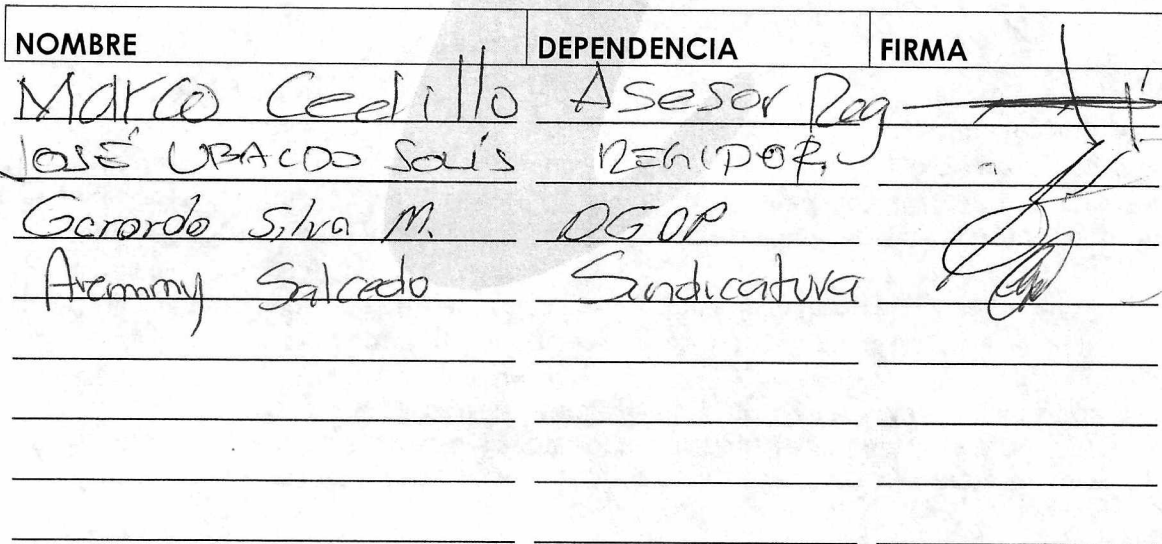 NOMBRE DEPENDENCIA FIRMA
Marco Cedillo Asesor Reg
JOSÉ UBALDO SOLÍS REGIDOR
Gerardo Silva M. DGOP
Aremmy Salcedo Sindicatura